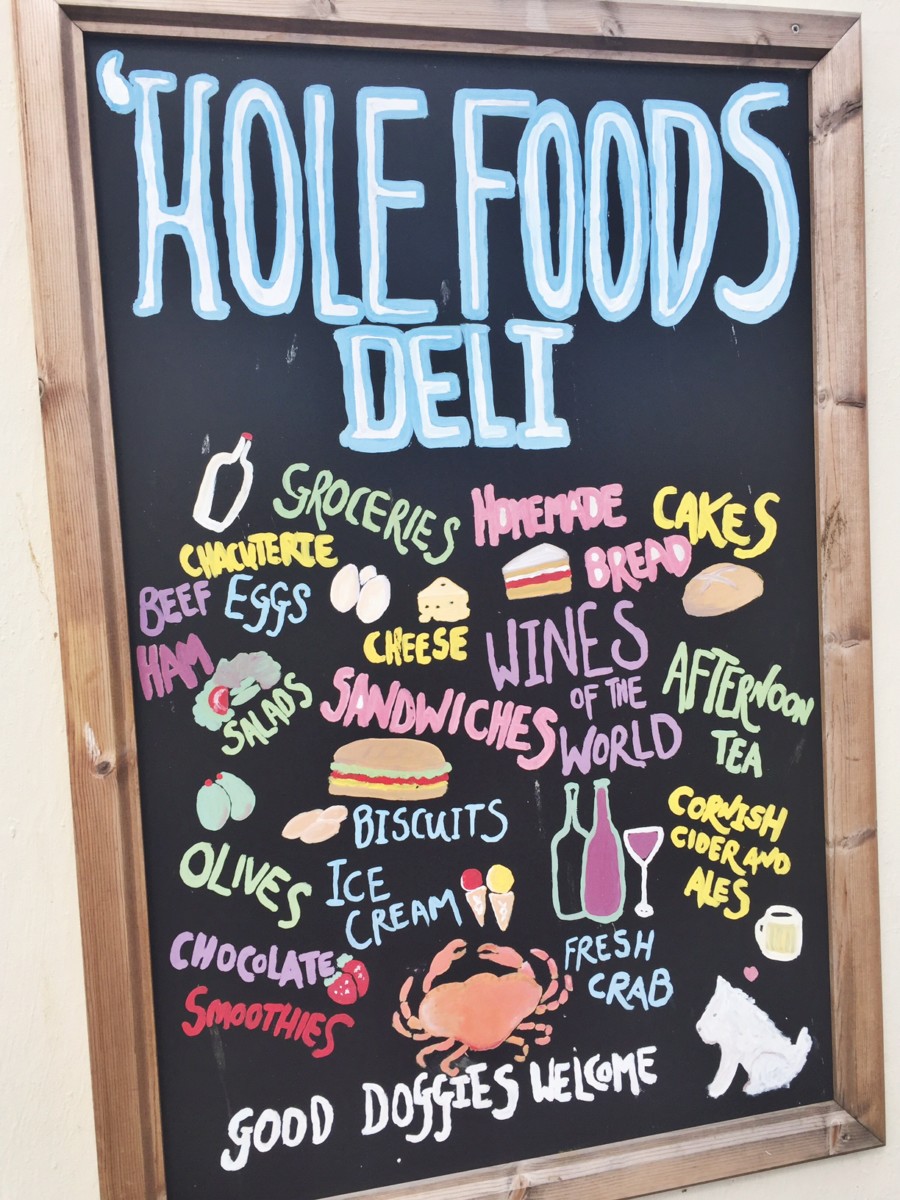 'HOLE FOODS
DELI
GROCERIES
HOMEMADE
CAKES
BREAD
CHACUTERIE
BEEF
EGGS
HAM
CHEESE
SALADS
SANDWICHES
WINES
OF THE
WORLD
AFTERNOON
TEA
BISCUITS
CORNISH
CIDER AND
ALES
OLIVES
ICE
CREAM
CHOCOLATE
FRESH
CRAB
SMOOTHIES
GOOD DOGGIES WELCOME